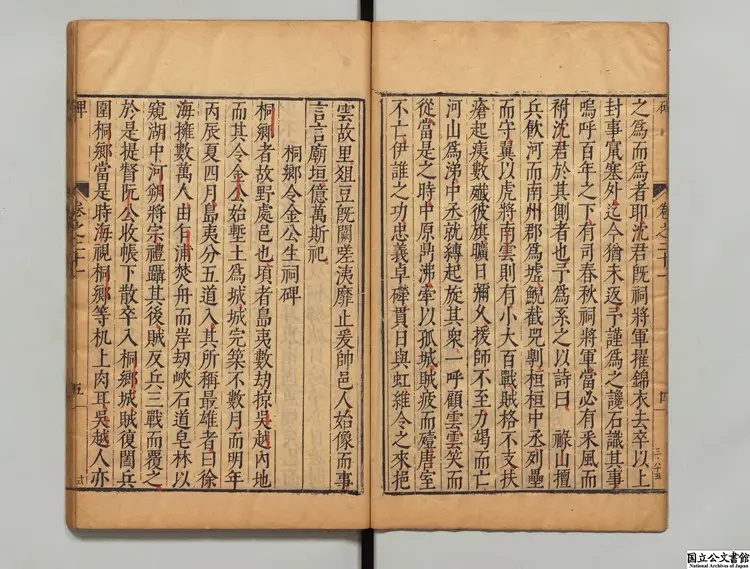 之爲而爲者耶沈君旣祠將軍擢錦衣去卒以上
封事竄塞外迄今猶未返予謹爲之讒石識其事
嗚呼百年之下有司春秋祠將軍當必有采風而
祔沈君於其側者也予爲系之以詩曰 祿山擅
兵飲河而南州郡爲墟鯢截呪剸桓桓中丞列壘
而守翼以虎將南雲則有小大百戰賊格不支扶
瘡起痍數殲彼旗曠日彌久援師不至力竭而亡
河山爲涕中丞就縛起旋其衆一呼顧雲雲笑而
從當是之時中原鼎沸牽以孤城賊疲而殪唐室
不亡伊誰之功忠義卓犖貫日與虹維令之來挹
碑
卷之二十一
四
三八十五
雲故里俎豆旣闕嗟洟靡止爰帥邑人始像而事
言言廟垣億萬斯祀
桐鄉令金公生祠碑
桐鄉者故野處邑也項者島夷數劫掠吳越內地
而其令金公始塹土爲城城完築不數月而明年
丙辰夏四月島夷分五道入其所稱最雄者曰徐
海擁數萬人由乍浦焚舟而岸刧峽石道皂林以
窺湖中河朔將宗禮躡其後賊反兵三戰而覆之
於是提督阮公收帳下散卒入桐鄉城賊復闔兵
圍桐鄉當是時海視桐鄉等机上肉耳吳越人亦
碑
卷之二十一
五
国立公文書館
National Archives of Japan